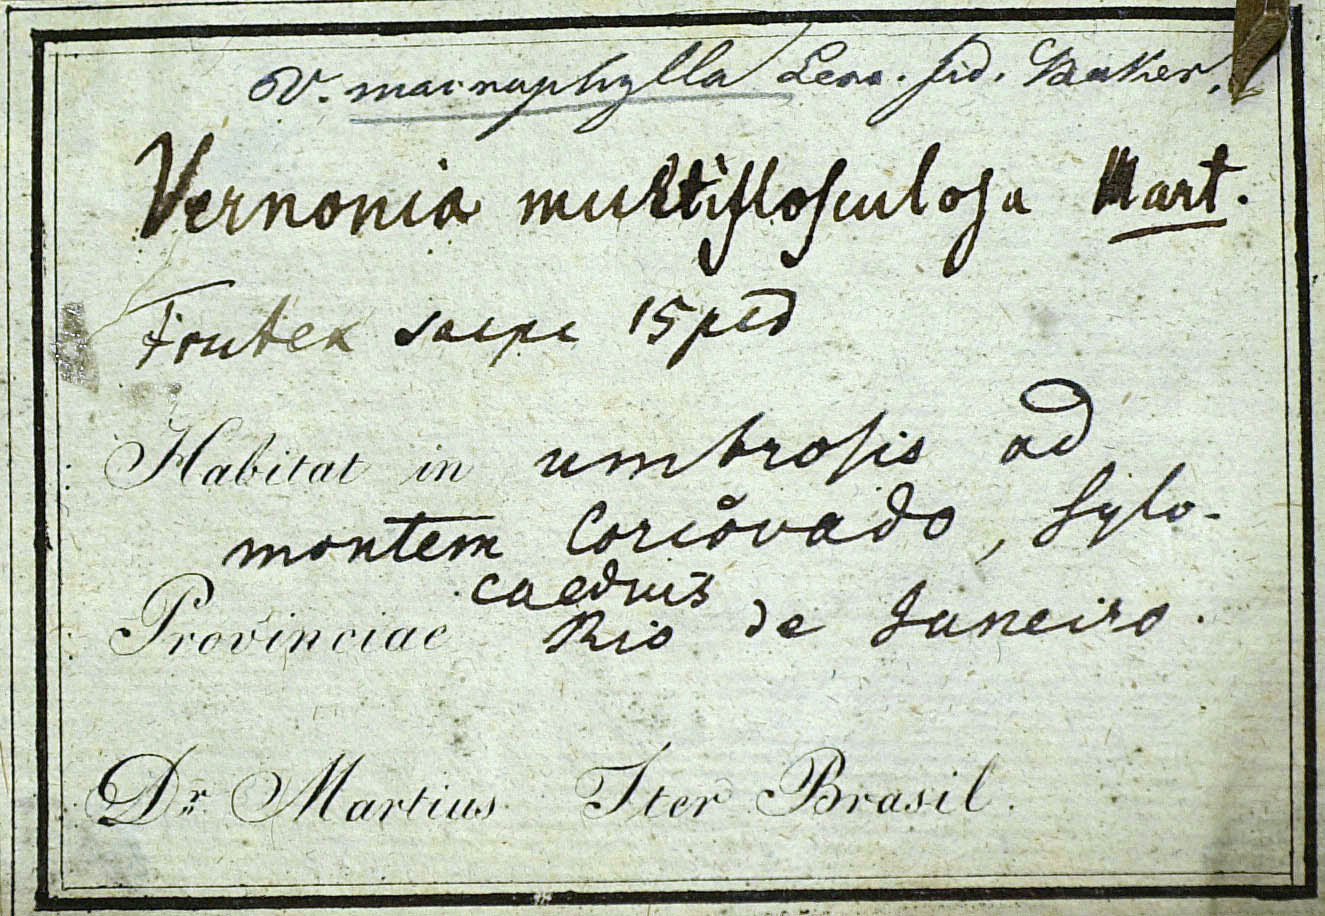 V. macrophylla Less. fid. Baker.
Vernonia multiflosculosa Mart.
Frutex saepe 15 ped
Habitat in umbrosis ad
montem Corcovado, sylv-
caeduis
Provinciae Rio de Janeiro.
Dr. Martius Iter Brasil.